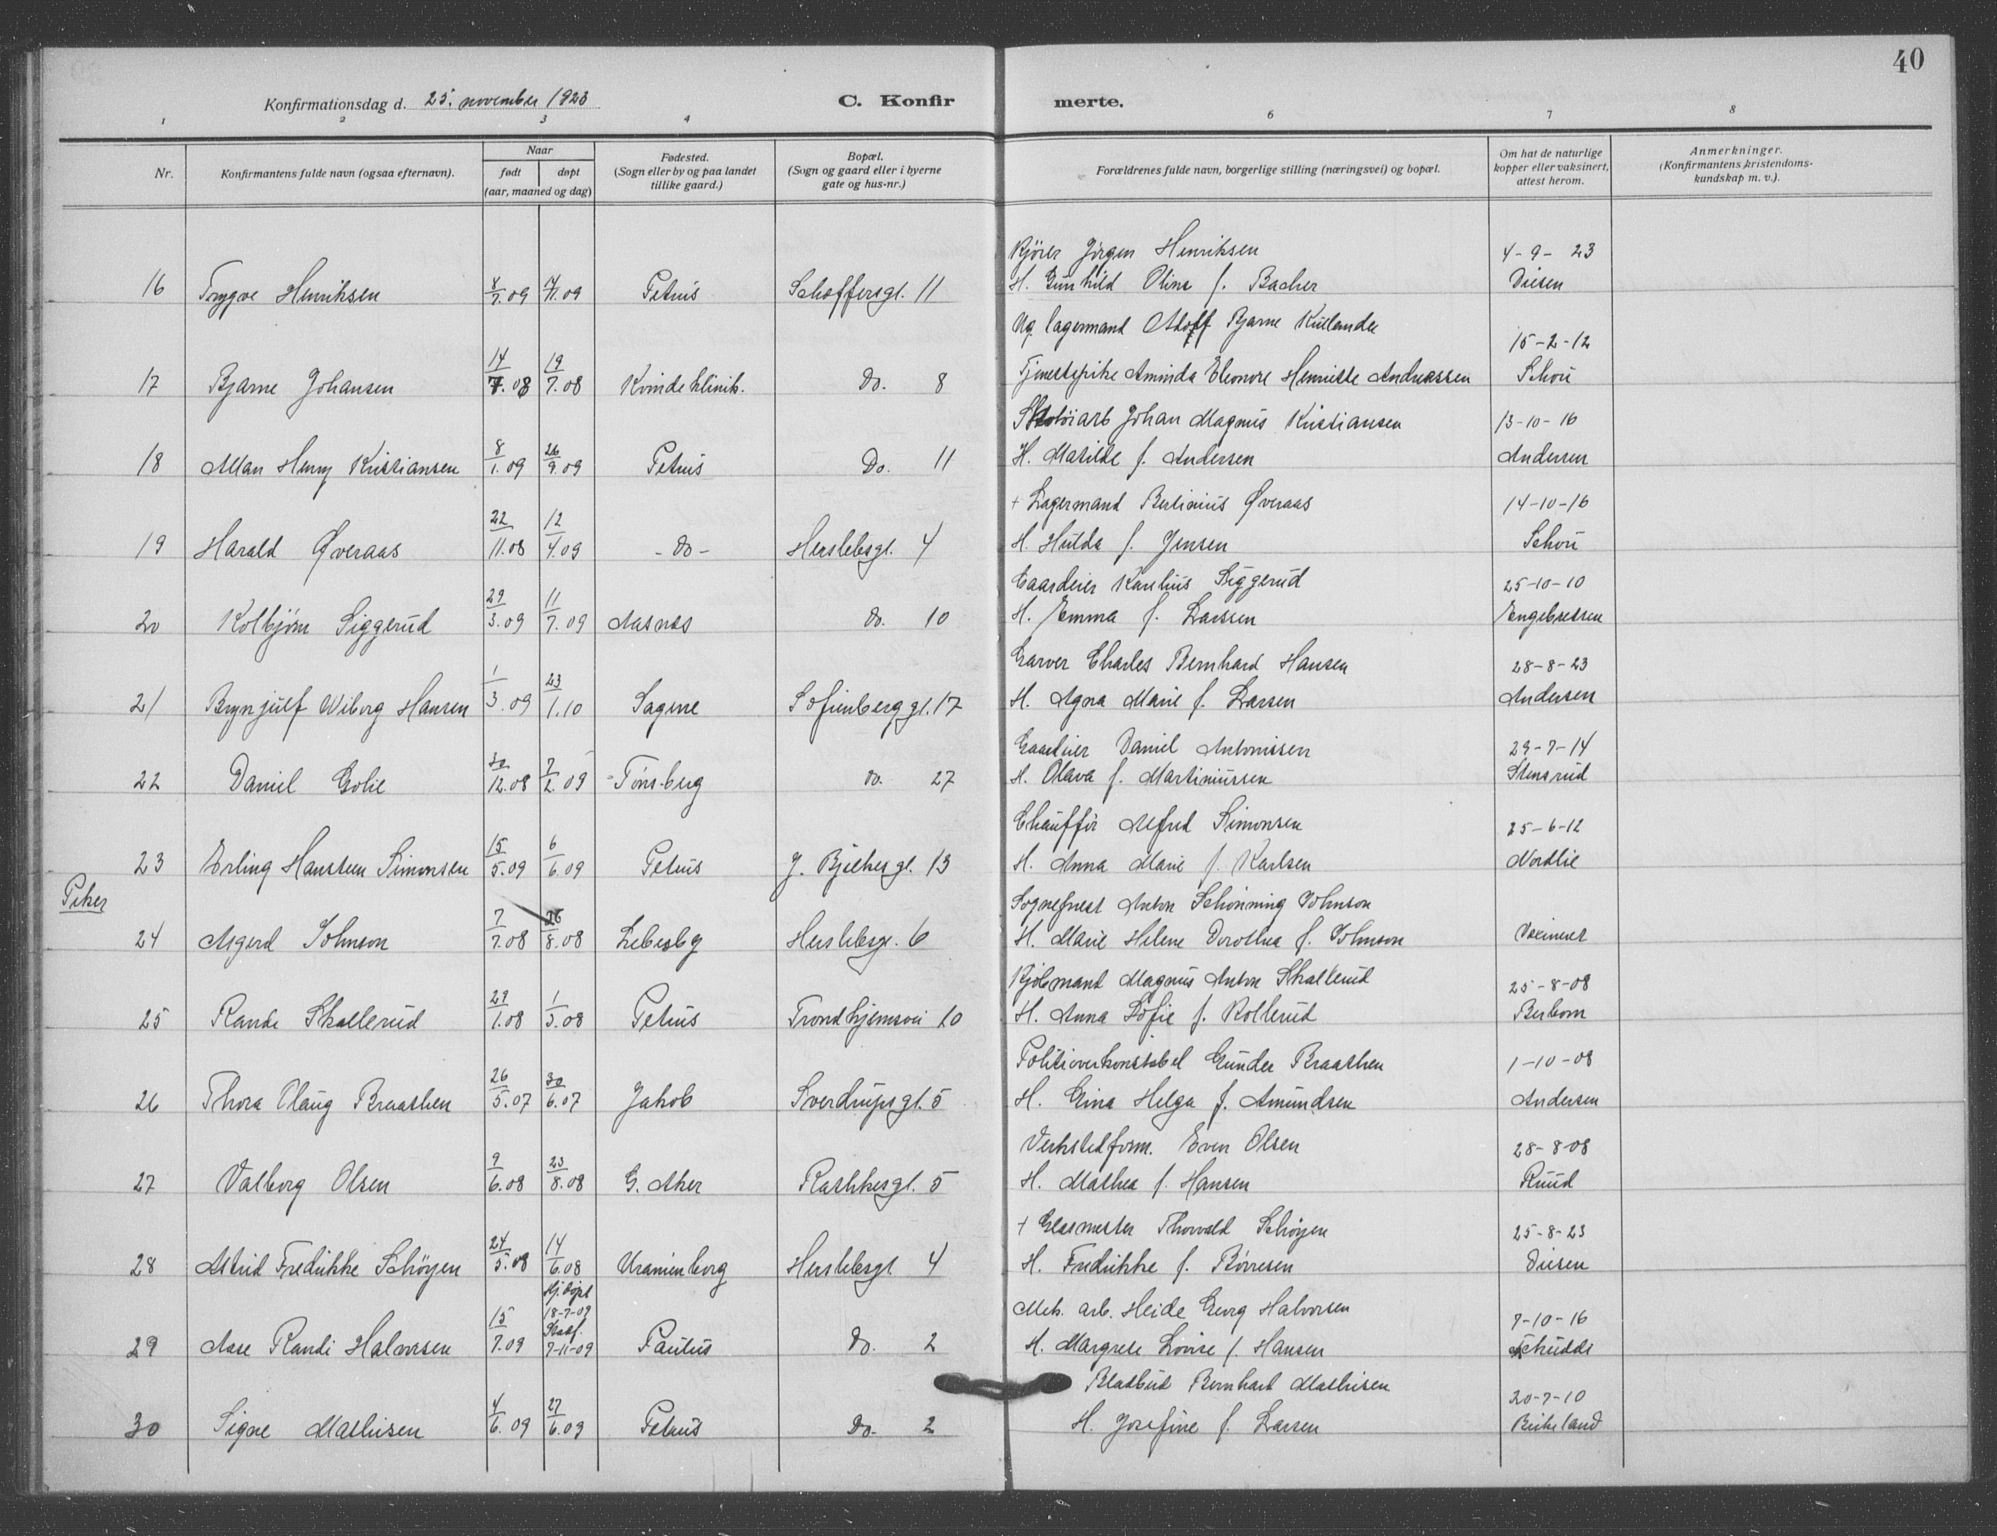 40
Konfirmationsdag d. 25. november 1923
C. Konfirmerte.
1 2 3 4 6 7 8
Nr.
Konfirmantens fulde navn (ogsaa efternavn).
Naar
født døpt
(aar, maaned og dag)
Fødested.
(Sogn eller by og paa landet
tillike gaard.)
Bopæl.
(Sogn og gaard eller i byerne
gate og hus-nr.)
Forældrenes fulde navn, borgerlige stilling (næringsvei) og bopæl.
Om hat de naturlige
kopper eller vaksinert,
attest herom.
Anmerkninger.
(Konfirmantens kristendoms-
kundskap m. v.).
Kjører Jørgen Henriksen 4-9-23
16 Trygve Henriksen 8/7.09 7/11.09 Petrus Schæffersgt. 11 H. Gunhild Olina f. Bacher Diesen
Ug. lagermand Adolf Bjarne Kullander 15-2-12
17 Bjarne Johansen 14/7.08 19/7.08 Kvindeklinik. Do. 8 Tjenestepike Aminda Eleonore Henriette Andreassen Schou
Skotøiarb Johan Magnus Kristiansen 13-10-16
18 Allan Henry Kristiansen 8/1.09 26/9.09 Petrus Do. 11 H. Matilde f. Andersen Andersen
+ Lagermand Bertinius Øveraas 14-10-16
19 Harald Øveraas 22/11.08 12/4.09 -do- Herslebsgt. 4 H. Hulda f. Jensen Schou
Gaardeier Karelius Siggerud 25-10-10
20 Kolbjørn Siggerud 29/3.09 11/7.09 Aasnes do. 10 H. Emma f. Larsen Engebretsen
Garver Charles Bernhard Hansen 28-8-23
21 Brynjulf Wiborg Hansen 1/3.09 23/1.10 Sagene Sofienberggt. 17 H. Agna Marie f. Larsen Andersen
Gaardeier Daniel Antonissen 29-7-14
22 Daniel Golie 30/12.08 7/2.09 Tønsberg do. 27 H. Olava f. Martiniussen Stensrud
Chauffør Alfred Simonsen 25-6-12
23 Erling Hansteen Simonsen 15/5.09 6/6.09 Petrus J. Bjelkesgt. 13 H. Anna Marie f. Karlsen Nordlie
Piker
Sogneprest Anton Schönning Johnson
24 Asgerd Johnson 7/7.08 26/8.08 Lebesby Herslebsgt. 6 H. Marie Helene Dorothea f. Johnson Vaccinert
Kjøbmand Magnus Anton Skallerud 25-8-08
25 Randi Skallerud 29/1.08 1/3.08 Petrus Trondhjemsvei 10 H. Anna Sofie f. Kollerud Berbom
Politioverkonstabel Gunder Braathen 1-10-08
26 Thora Olaug Braathen 26/5.07 30/6.07 Jakob Sverdrupsgt. 5 H. Gina Helga f. Amundsen Andersen
Verkstedform. Even Olsen 28-8-08
27 Valborg Olsen 9/6.08 23/8.08 G. Aker Rathkesgt. 5 H. Mathea f. Hansen Ruud
+ Glasmester Thorvald Schøyen 25-8-23
28 Astrid Fredrikke Schøyen 24/5.08 14/6.08 Uranienborg Herslebsgt 4 H. Fredrikke f. Børresen Diesen
Hj.døpt
Mek. arb. Heide Georg Halvorsen 7-10-16
29 Aase Randi Halvorsen 15/7.09 18-7-09 Stadf. 7-11-09 Paulus Do. 2 H. Margrete Lovise f. Hansen Schudde
Bladbud Bernhart Mathisen 20-7-10
30 Signe Mathisen 4/6.09 27/6.09 Petrus Do. 2 H. Josefine f. Larsen Birkeland